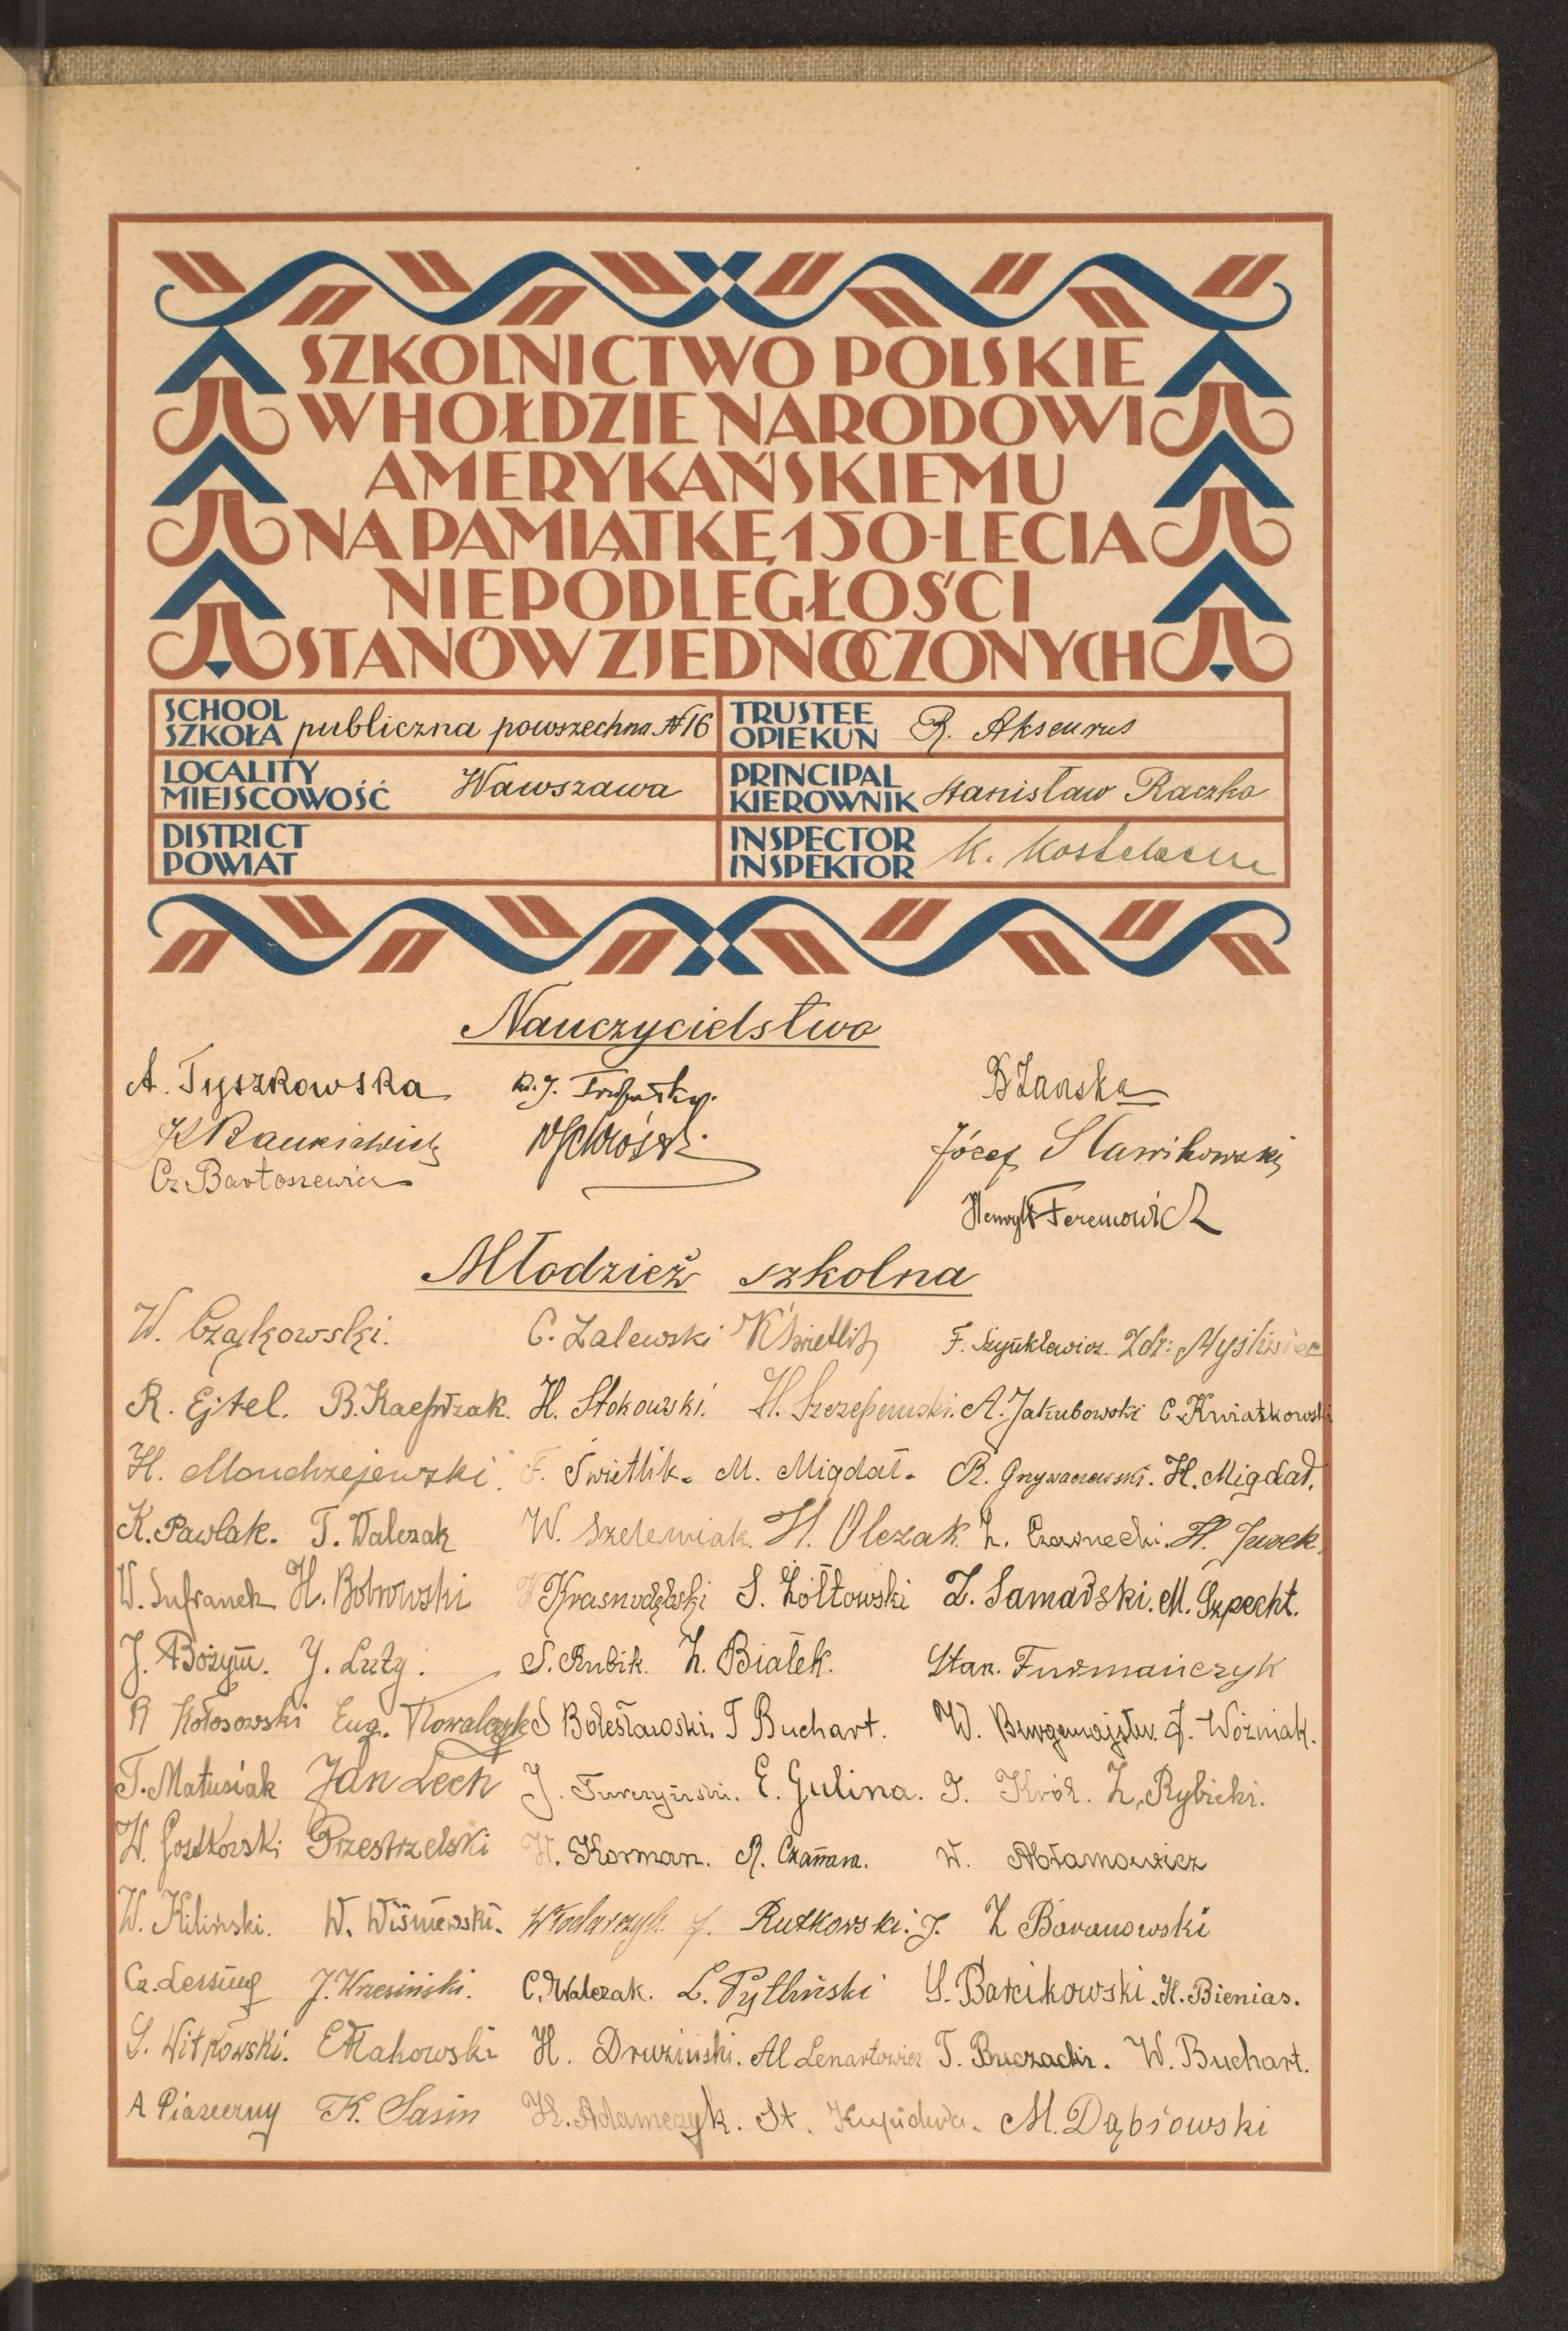 SZKOLNICTWO POLSKIE
W HOŁDZIE NARODOWI
AMERYKAŃSKIEMU
NA PAMIĄTKĘ 150-LECIA
NIEPODLEGŁOŚCI
STANÓW ZJEDNOCZONYCH
SCHOOL SZKOŁA publiczna powszechna № 16
TRUSTEE OPIEKUN R.
LOCALITY MIEJSCOWOŚĆ Warszawa
PRINCIPAL KIEROWNIK Stanisław Raczko
DISTRICT POWIAT
INSPECTOR INSPEKTOR K.
Nauczycielstwo
A. Tyszkowska
Józef Sławikowski
Cz. Bartoszewicz
Henryk
Młodzież szkolna
W. Czajkowski. C. Zalewski K Świetlik F. Szynklewicz. Zdz: Myśliwiec
R. Ejtel. B. Kacprzak. H. Stokowski. H. Szczepański. A. Jakubowski C. Kwiatkowski
H. Mondrzejewski F. Świetlik. M. Migdał. R. Grzywaczewski. H. Migdał.
K. Pawlak. T. Walczak W. Szelewiak. H. Olczak Z. Czarnecki. H. Jurek.
W. Sufranek H. Bobrowski Krasnodębski S. Żółtowski Z. Samarski. M. Szpecht.
J. Bożym. J. Luty. S. Rubik. Z. Białek. Stan. Furmańczyk
R Kołosowski Eug. Kowalczyk S Bolesławski. T Buchart. W. Burgemajster. J. Woźniak.
T. Matusiak Jan Lech J. Turczyński. E. Gulina. T. Król. Z. Rybicki.
W. Gostkowski Przestrzelski H. Korman. R. Czamara. W. Abłamowicz
W. Kiliński. W. Wiśniewski. Włodarczyk J. Rutkowski. J. Z Baranowski
Cz. Lessing J. Wrzesiński. C. Walczak. L. Pytliński S. Barcikowski. H. Bienias.
S. Witkowski. E Makowski H. Druziński. Al Lenartowicz T. Buczacki. W. Buchart.
A Piaseczny K. Sasin H. Adamczyk. St. M. Dąbrowski